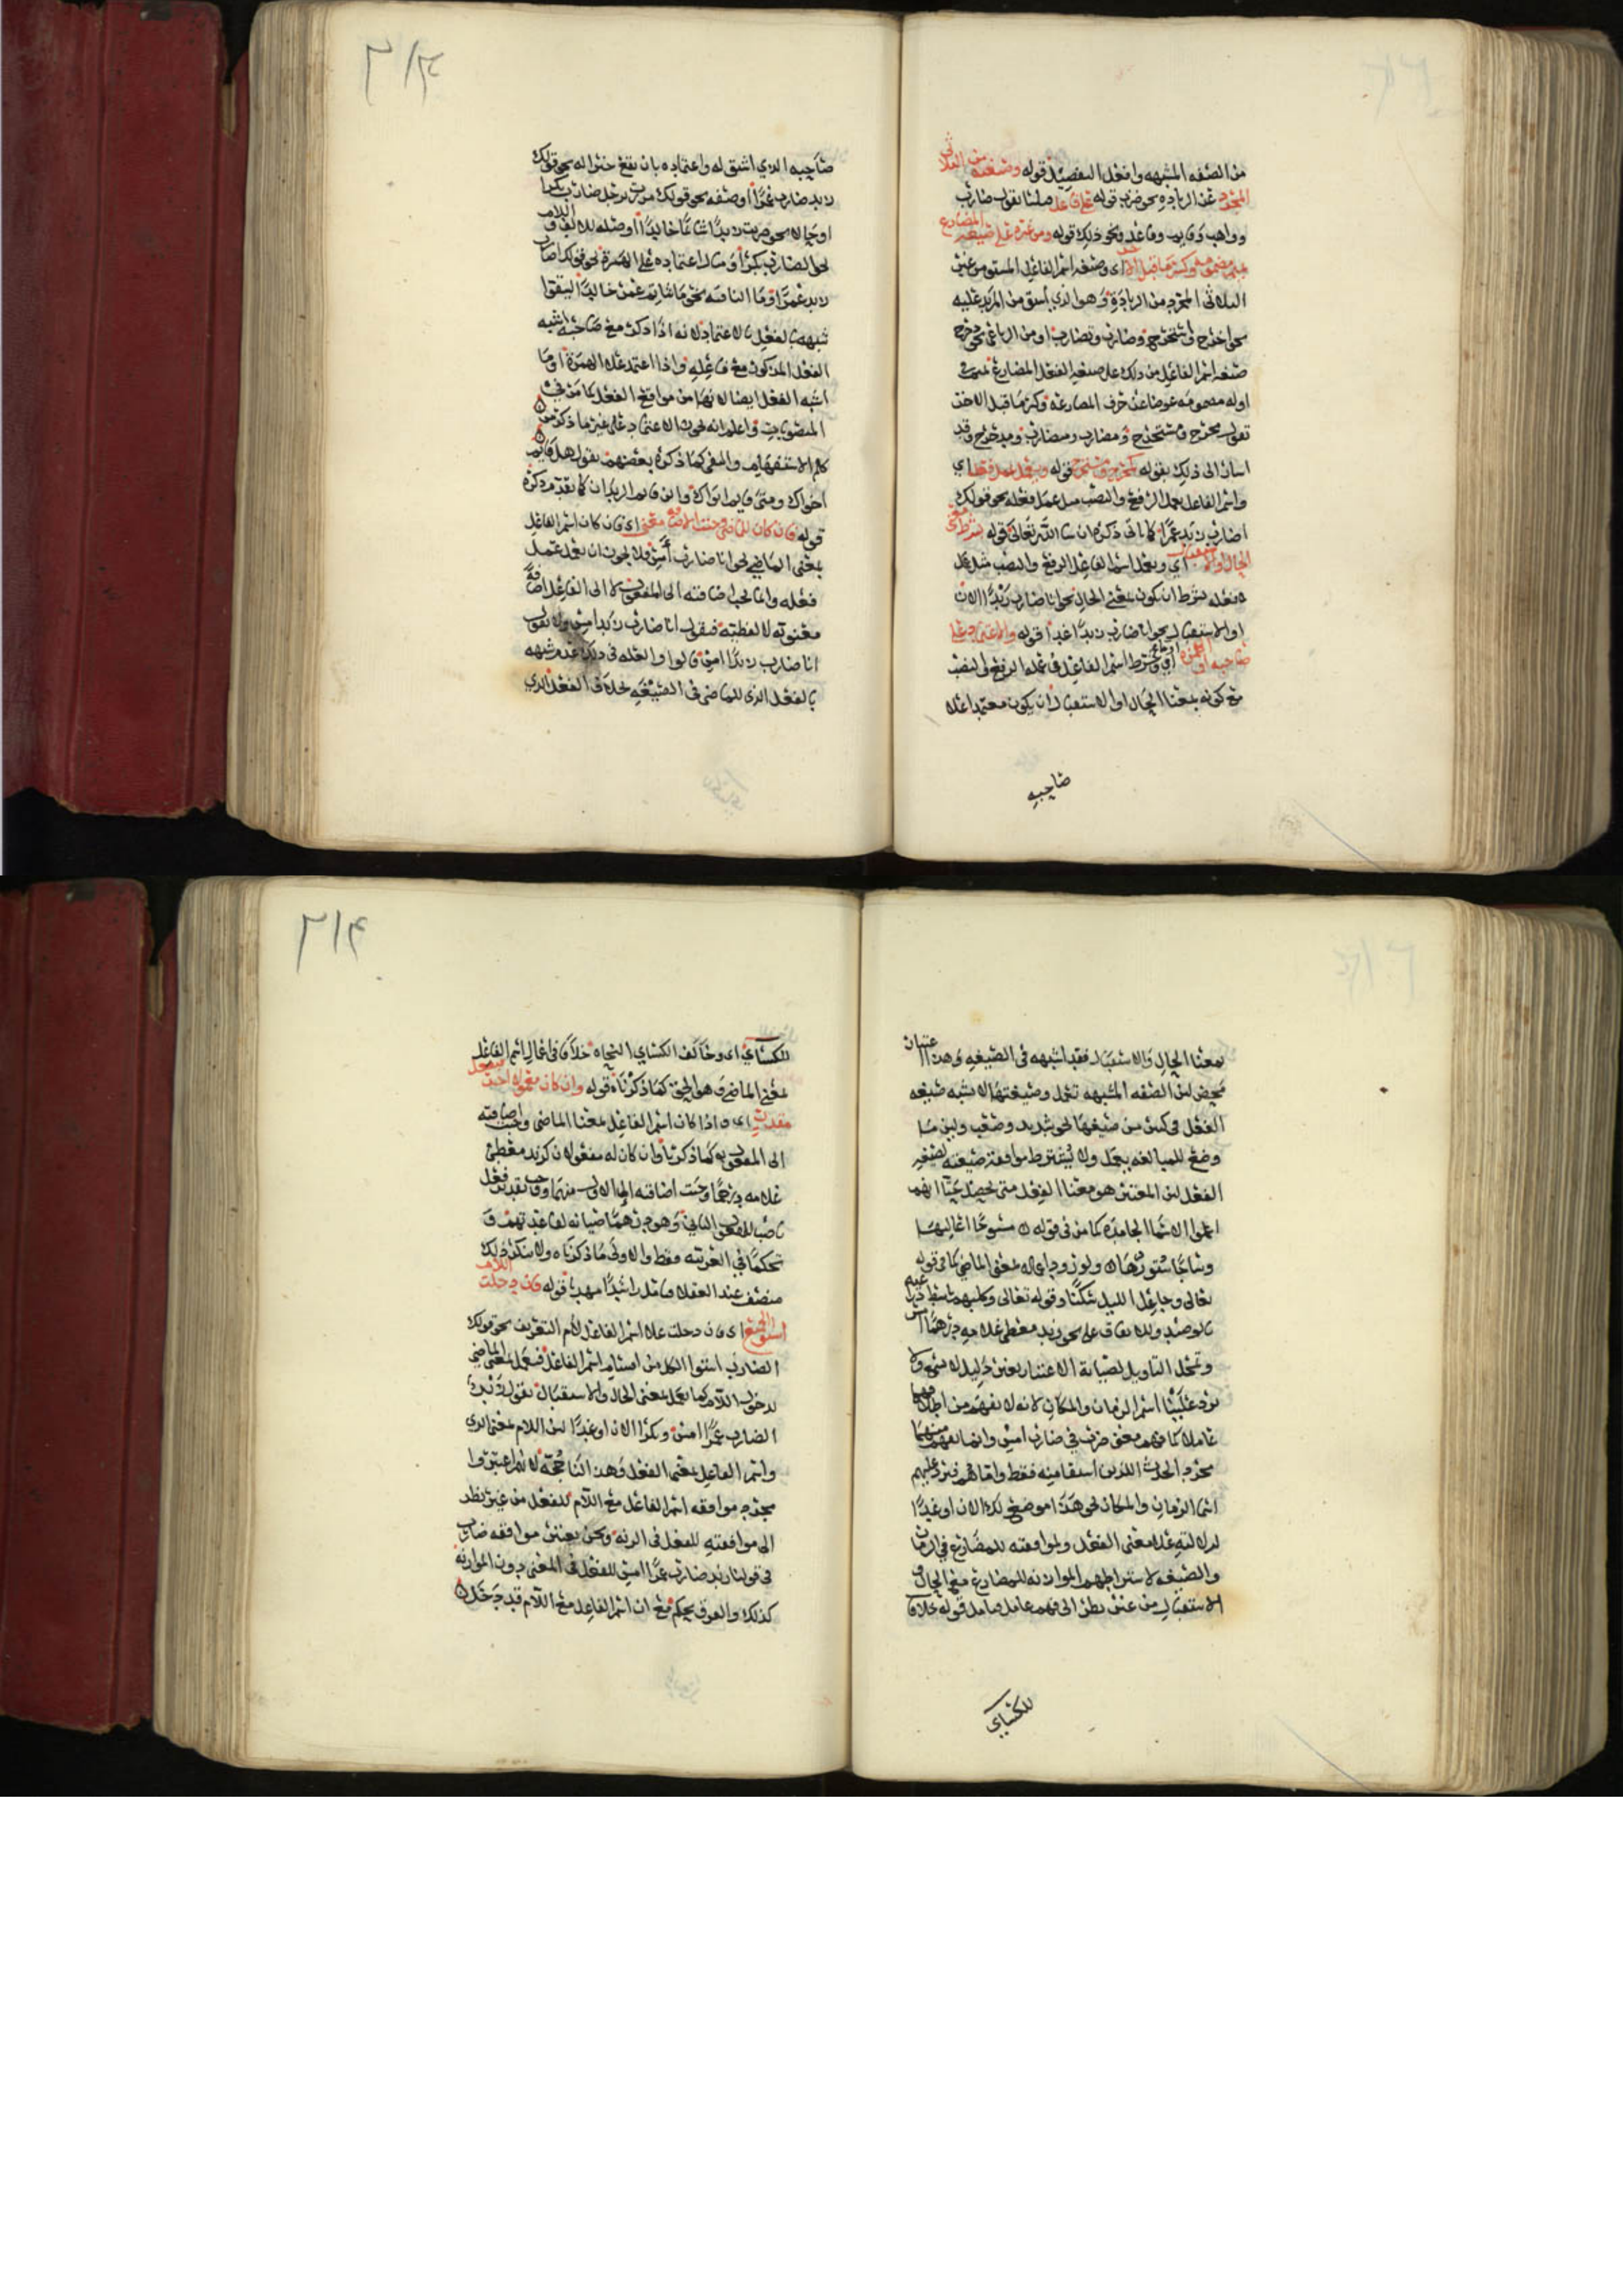 من الصفه المشبهه وافعل التفضيل قوله وصيغته من الثلاثي
المجرد عن الزياده نحو ضرب قوله على فاعل مثلنا تقول ضارب
وواهب وقايم وقاعد ونحو ذلك قوله ومن غيره على صيغه المضارع
بميم مضمومه وكسر ما قبل الاخر اي وصيغه اسم الفاعل المشتق من غير
الثلاثي المجرد من الزيادة وهو الذي اشتق من المزيد عليه
نحو اخرج واستخرج وضارب وتضارب او من الرباعي نحو دحرج
صيغه اسم الفاعل من ذلك على صيغه الفعل المضارع بميم في
اوله مضمومه عوضا عن حرف المضارعه وكسر ما قبل الاخر
تقول مخرج ومستخرج ومضارب ومتضارب ومدحرج وقد
اشار الى ذلك بقوله كمخرج ومستخرج قوله ويعمل عمل فعله اي
واسم الفاعل يعمل الرفع والنصب مثل عمل فعله نحو قولك
اضارب زيد عمرًا كما ياتى ذكره ان شا الله تعالى قوله بشرط معنى
الحال والاستقبال اي ويعمل اسم الفاعل الرفع والنصب مثل عمل
فعله بشرط ان يكون بمعنى الحال نحو انا ضارب زيدًا الان
او الاستقبال نحو انا ضارب زيدًا غدا قوله والاعتماد على
صاحبه او الهمزه او ما اي وشرط اسم الفاعل في عمله الرفع والنصب
مع كونه بمعنا الحال او الاستقبال ان يكون معتمدا على
صاحبه
٣١٣
صاحبه الذي اشتق له واعتماده بان يقع خبرا له نحو قولك
زيد ضارب عمرًا او صفه نحو قولك مررت برجل ضارب بكرا
او حالا نحو ضربت زيدًا شاتمًا خالدًا او صله للالف واللام
نحو الضارب بكرًا ومثال اعتماده على الهمزة نحو قولك اضارب
زيد عمرًا وما النافيه نحو ما شاتم عمرو خالدًا ليتقوا
شبهه بالفعل بالاعتماد لانه اذا ذكر مع صاحبه اشبه
الفعل المذكور مع فاعله واذا اعتمد على الهمزة او ما
اشبه الفعل ايضا لانهما من مواقع الفعل كما مر في
المنصوبات واعلم انه يجوز الاعتماد على غير ما ذكر من
كلم الاستفهام والنفي كما ذكره بعضهم تقول هل قايم
اخواك ومتى قايم ابواك وان قايم الزيدان كما تقدم ذكره
قوله فان كان للماضي وجبت الاضافه معنى اي فان كان اسم الفاعل
بمعنى الماضي نحو انا ضارب امس فلا يجوز ان يعمل عمل
فعله وانما يجب اضافته الى المفعول لا الى الفاعل اضافة
معنويه لا لفظيه فتقول انا ضارب زيد امس ولا تقول
انا ضارب زيدًا امس قالوا والعله في ذلك عدم شبهه
بالفعل الذي للماضي في الصيغه بخلاف الفعل الذي
بمعنا الحال والاستقبال فقد اشبهه في الصيغه وهذا اعتبار
محض لان الصفه المشبهه تعمل وصيغتها لا تشبه صيغه
الفعل في كثير من صيغها نحو شديد وصعب ولين وما
وضع للمبالغه يعمل ولا يشترط موافقة صيغته لصيغه
الفعل لان المعتبر هو معنا الفعل متى يحصل عينا انهم
اعملوا الاسما الجامده كما مر في قوله
تعالى وجاعل الليل سكنًا وقوله تعالى وكلبهم باسط ذراعيه
بالوصيد وللاتفاق على نحو زيد معطي غلامه درهمًا امس
وتمحل التاويل لصيانة الاعتبار بغير دليل لا يسمع ولا
يرد علينا اسم الزمان والمكان لانه لا يفهم من اطلاقهما
عاملا كما فهم معنى ضرب في ضارب امس وانما يفهم منهما
مجرد الحدث اللذين اشتقا منه فقط وانما هم فيرد عليهم
اسما الزمان والمكان نحو هذا موضع لك الان او غدًا
لدلالته على معنى الفعل ولموافقته للمضارع في الزمان
والصيغه لاشتراطهم الموازنه للمضارع مع الحال و
الاستقبال من غير نظر الى فهم عامل فتامل قوله خلافا
للكسائي
٣١٤
للكسائي اي وخالف الكسائي النحاه خلافا في اعمال اسم الفاعل
بمعنى الماضي وهو الحق كما ذكرناه قوله وان كان معمول اخر فبفعل
مقدر اي واذا كان اسم الفاعل بمعنا الماضي وجبت اضافته
الى المفعول به كما ذكرنا وان كان له مفعولان كزيد معطي
غلامه درهمًا وجبت اضافته الى الاول منهما وجب تقدير فعل
ناصبا للمفعول الثاني وهو درهمًا صيانه لقاعدتهم و
تحكمًا في العربيه فقط والاولى ما ذكرناه ولا ينكر ذلك
منصف عند العقلا فتامل راشدًا مهديًا قوله فان دخلت اللام
استوى الجميع اي فان دخلت على اسم الفاعل لام التعريف نحو قولك
الضارب استوا الكل من اقسام اسم الفاعل فيعمل بمعنى الماضي
بدخول اللام كما يعمل بمعنى الحال والاستقبال تقول زيد
الضارب عمرًا امس وبكرا الان او غدًا لان اللام بمعنى الذي
واسم الفاعل بمعنى الفعل وهذا لنا حجة لانهم اعتبروا
مجرد موافقه اسم الفاعل مع اللام للفعل من غير نظر
الى موافقته للفعل في الزنه ونحن نعتبر موافقه ضارب
في قولنا زيد ضارب عمرًا امس للفعل في المعنى دون الموازنه
كذلك والفرق تحكم مع ان اسم الفاعل مع اللام قد دخل